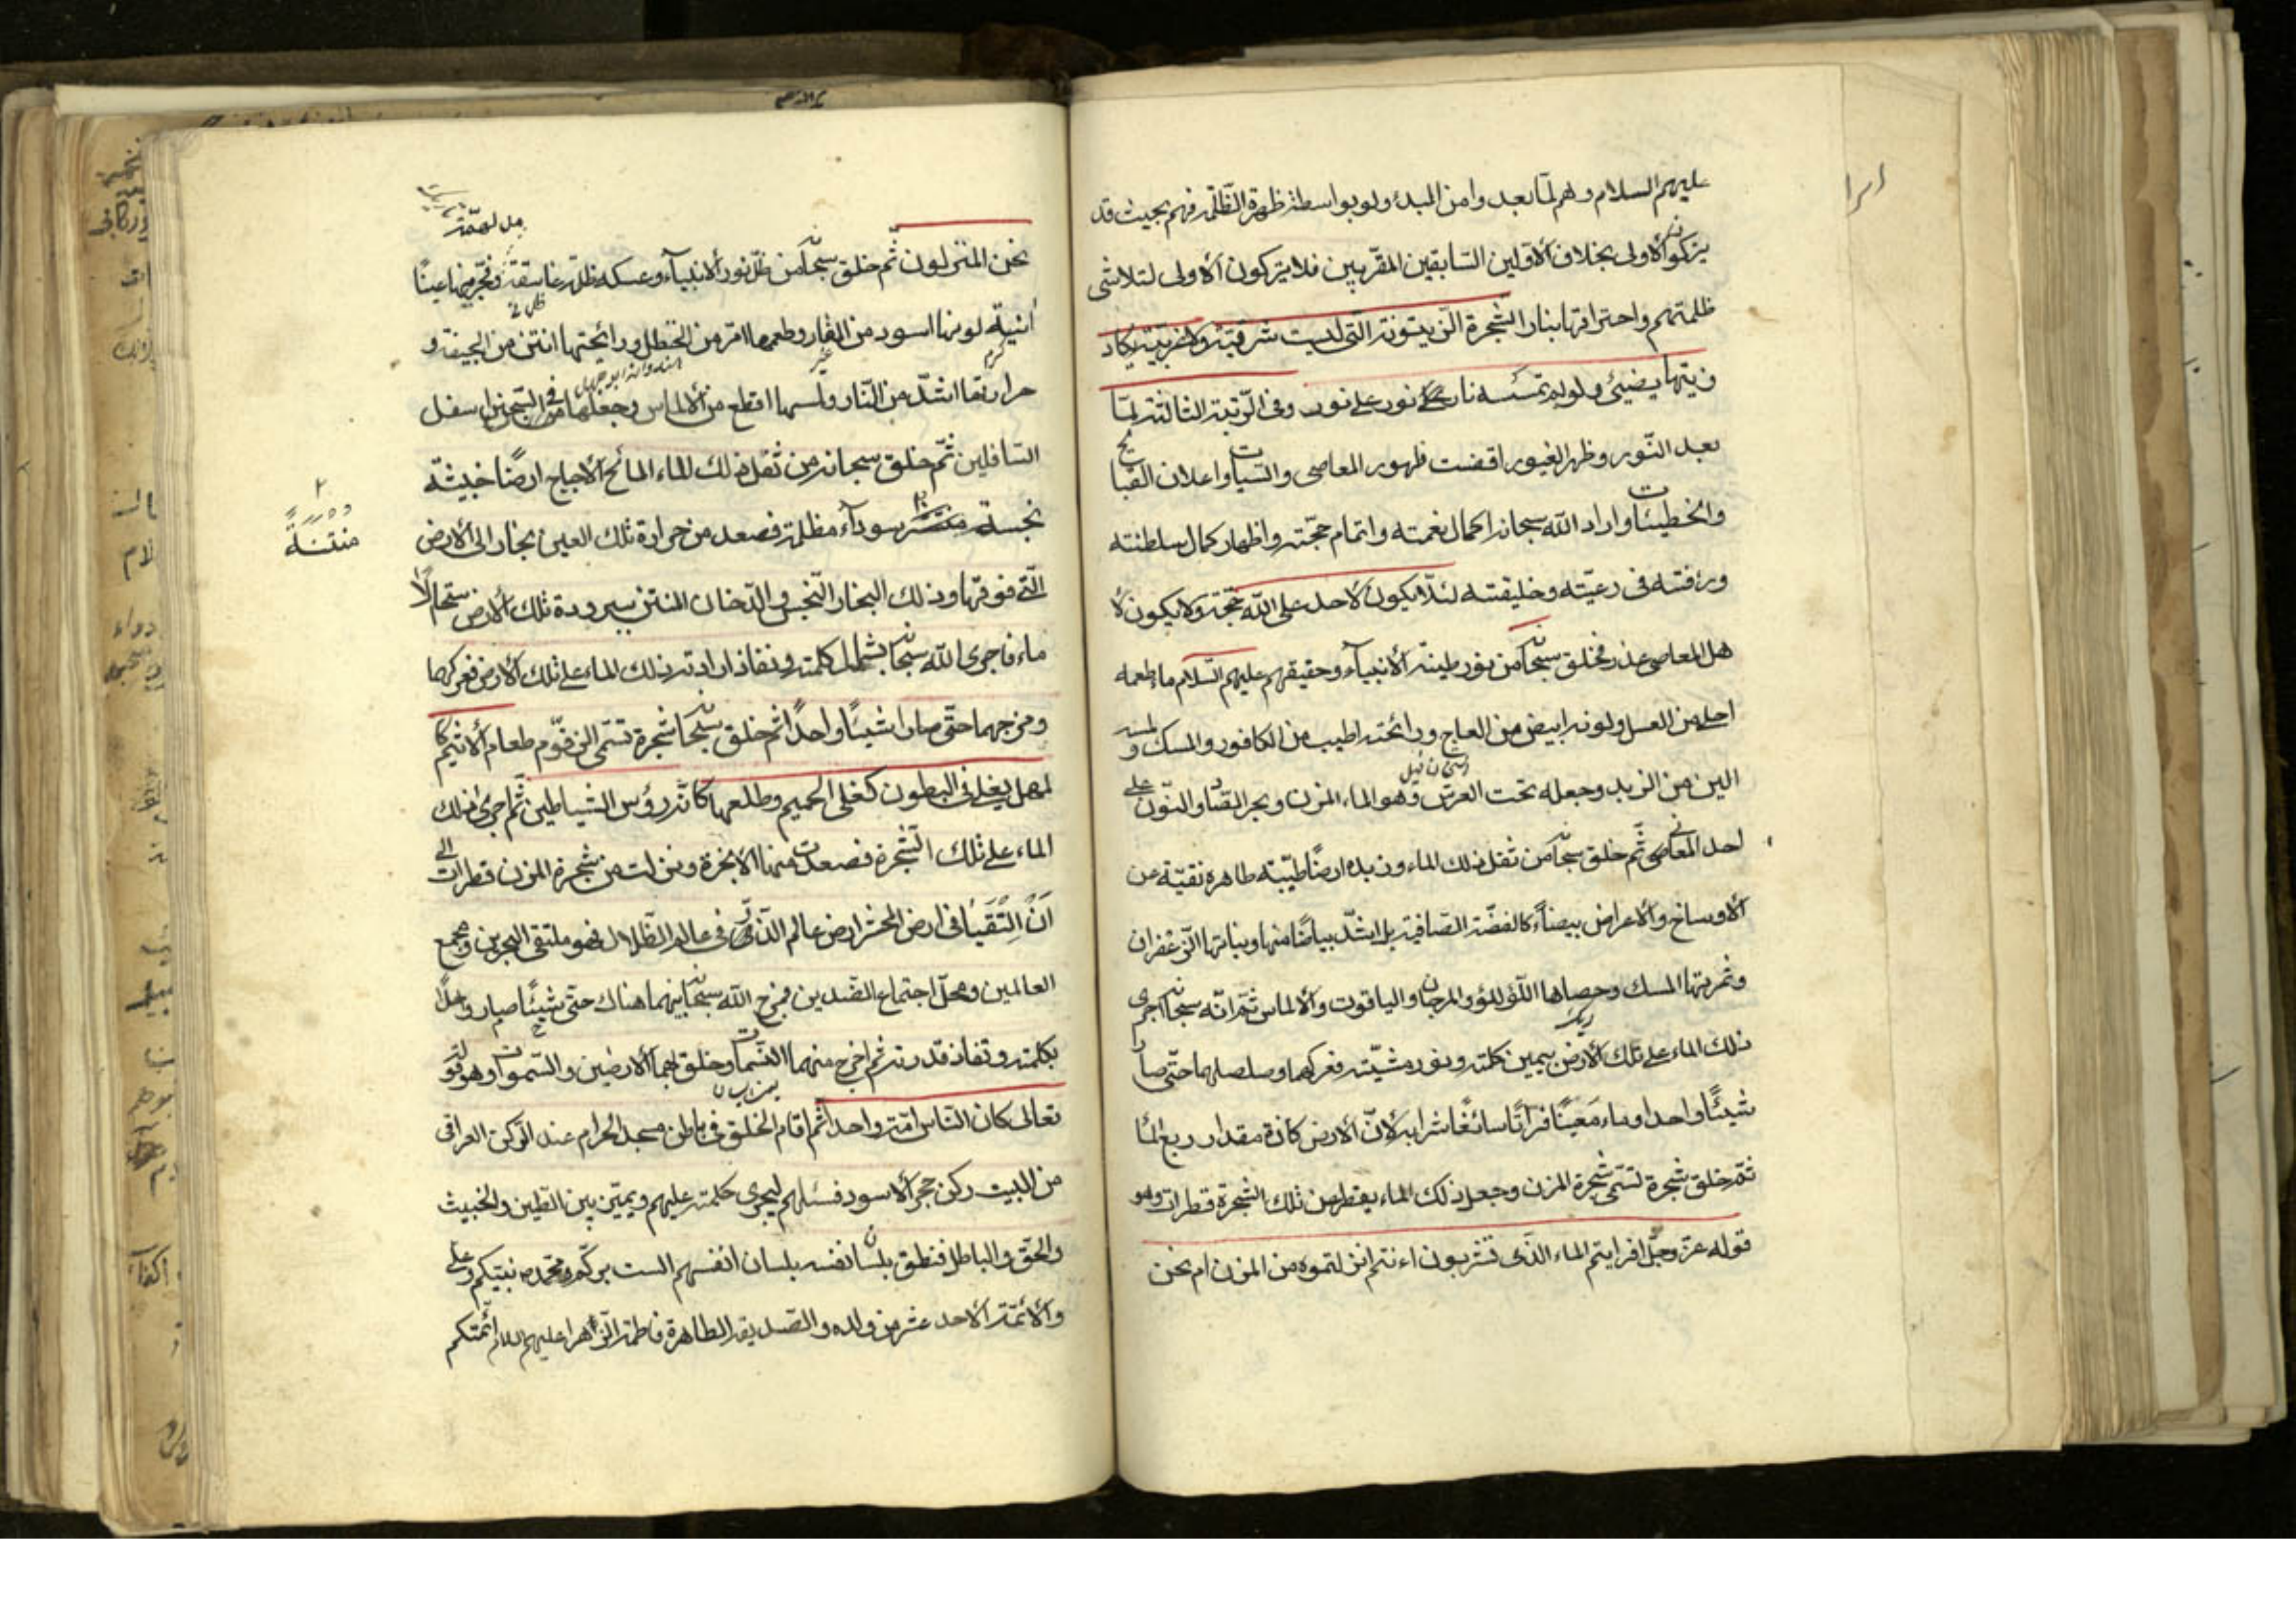 عليهم السلام وهم لما بعدوا من المبدء ولو بواسطة ظهرة الظلمة فهم بحيث قد
يتركوا الاولى بخلاف الاولين السابقين المقربين فلا يتركون الاولى لتلاشى
ظلمتهم واحتراقها بنار الشجرة الزيتونة التى ليست شرقية ولا غربية يكاد
زيتها يضيئ ولو لم تمسسه نار نور على نور وفى الرتبة الثالثة لما
بعد النور وظهر الغيور اقضت ظهور المعاصى والسيات واعلان القبايح
والخطيئات واراد الله سبحانه اكمال نعمته واتمام حجته واظهار كمال سلطنته
ورافته فى رعيته وخليقته لئلا يكون لاحد على الله حجة ولا يكون لا
هل المعاصى عذر فخلق سبحانه من نور طينة الانبياء وحقيقتهم عليهم السلام ماء طعمه
احلى من العسل ولونه ابيض من العاج ورائحته اطيب من الكافور والمسك ولمسه
الين من الزبد وجعله تحت العرش وهو الماء المزن وبحر الصاد والنون على
احد المعانى ثم خلق سبحانه من ثفل ذلك الماء وزبده ارضًا طيبة طاهرة نقية عن
الاوساخ والاعراض بيضاء كالفضة الصافية بل اشد بياضًا منها ونباتها الزعفران
وثمرتها المسك وحصاها اللؤلؤ والمرجان والياقوت والالماس ثم انه سبحانه اجرى
ذلك الماء على تلك الارض بيمين كلمته ونور مشيته فعركهما وصلصلهما حتى صارا
شيئًا واحدا وماء معينًا فراتًا سائغًا شرابه لان الارض كانت مقدار ربع الماء
ثم خلق شجرة تسمى شجرة المزن وجعل ذلك الماء يقطر من تلك الشجرة قطرات وهو
قوله عز وجل افرايتم الماء الذى تشربون اءنتم انزلتموه من المزن ام نحن
نحن المنزلون ثم خلق سبحانه من ظل نور الانبياء وعكسه ظلمة غاسقة وفجر منها عينًا
انية لونها اسود من القار وطعمها امر من الحنظل ورائحتها انتن من الجيفة و
حرارتها اشد من النار ولمسها اقطع من الالماس وجعلها فى السجين اسفل
السافلين ثم خلق سبحانه من ثفل ذلك الماء المالح الاجاج ارضًا خبيثة
نجسة سوداء مظلمة فصعد من حرارة تلك العين بخار الى الارض
منتنة
التى فوقها وذلك البخار النجس والدخان المنتن ببرودة تلك الارض ستحالا
ماء فاجرى الله سبحانه بشمال كلمته ونفاذ ارادته ذلك الماء على تلك الارض فعركهما
ومزجهما حتى صارا شيئًا واحدًا ثم خلق سبحانه شجرة تسمى الزقوم طعام الاثيم كا
لمهل يغلى فى البطون كغلى الحميم وطلعها كانه رؤس الشياطين ثم اجرى ذلك
الماء على تلك الشجرة فصعدت منها الابخرة ونزلت من شجرة المزن قطرات الى
ان التقيا فى ارض المحشر ارض عالم الذر فى عالم الظلال فهو ملتقى البحرين ومجمع
العالمين ومحل اجتماع الضدين فمزج الله سبحانه بينهما هناك حتى صار شيئًا واحدًا
بكلمته ونفاذ قدرته ثم اخرج منهما النسمات وخلق بهما الارضين والسموات وهو قوله
تعالى كان الناس امة واحدة ثم اقام الخلق فى باطن مسجد الحرام عند الركن العراقى
من البيت ركن حجر الاسود فسئلهم ليجرى كلمته عليهم ويميز بين الطيب والخبيث
والحق والباطل فنطق بلسان نفسه بلسان انفسهم الست بربكم ومحمد نبيكم وعلى
والائمة الاحد عشر من ولده والصديقة الطاهرة فاطمة الزهرا عليهم السلام ائمتكم